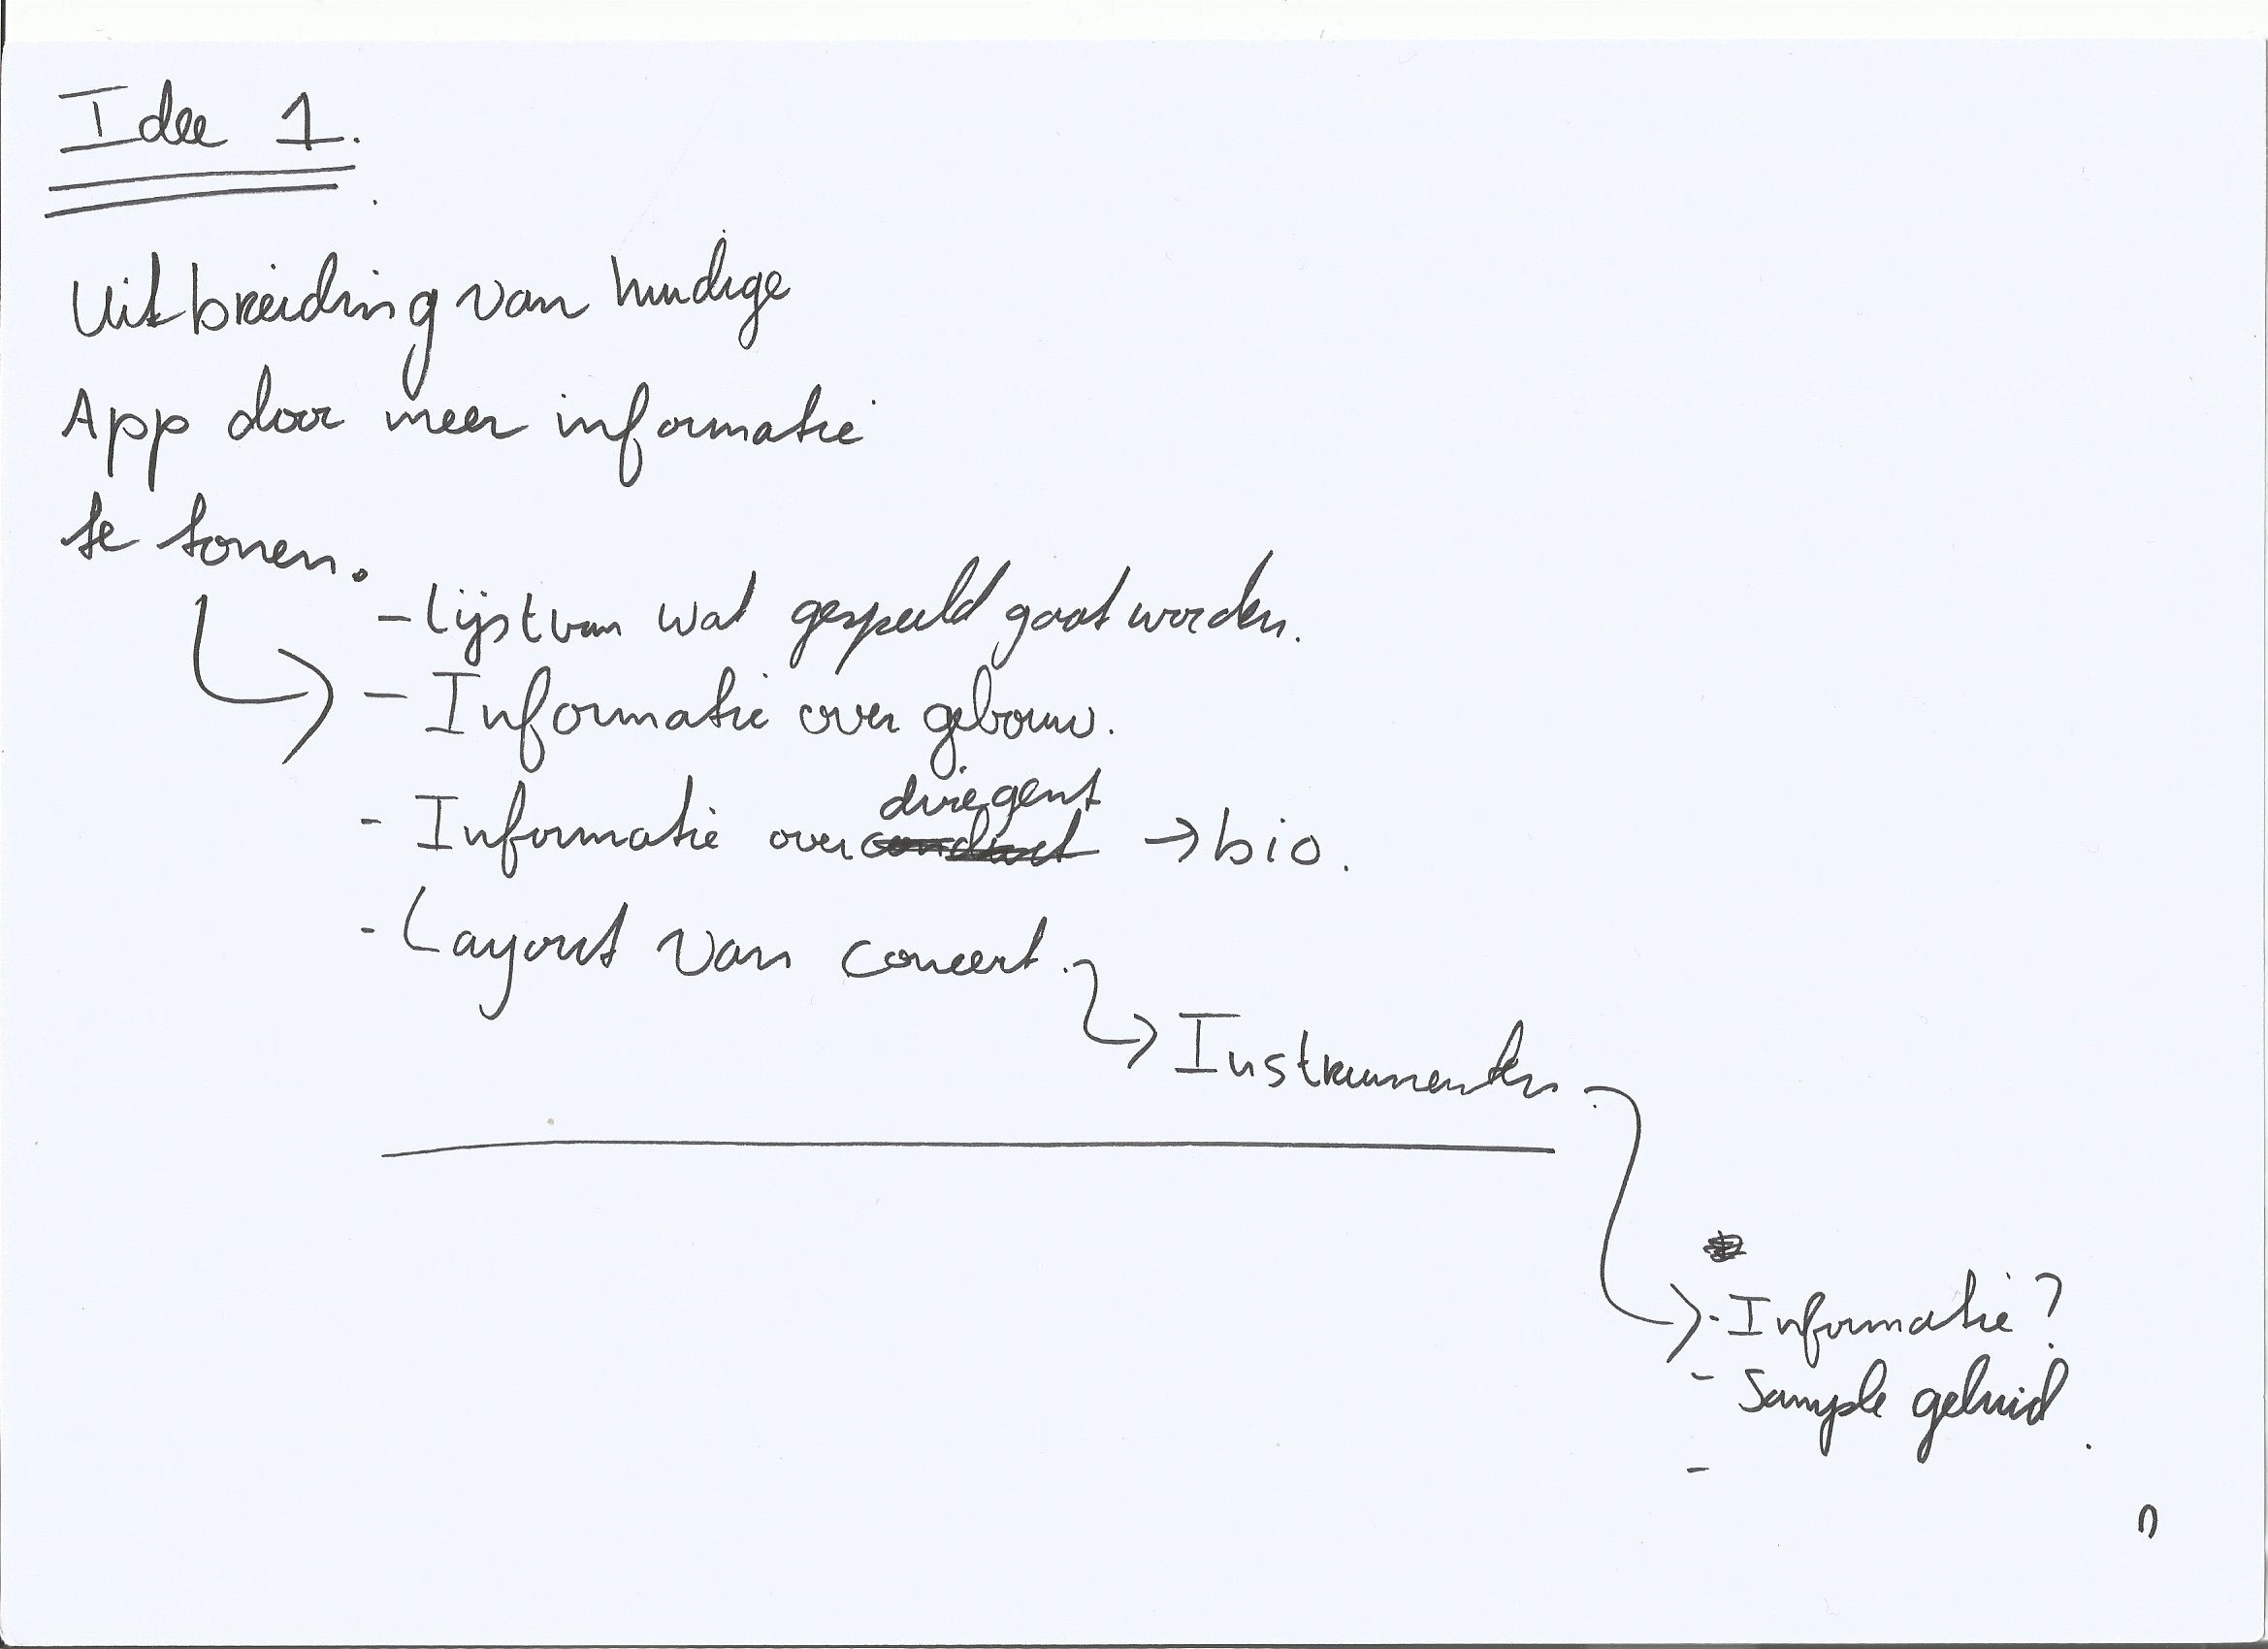 Idee 1.
Uitbreiding van huidige
App door meer informatie
te tonen.
- Lijst van wat gespeeld gaat worden.
- Informatie over gebouw.
- Informatie over dirigent → bio.
- Layout van concert.
Instrumenten.
- Informatie?
- Sample geluid.
-